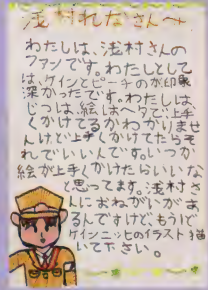 浅村れなさんへ
わたしは、浅村さんの
ファンです。わたしとして
は、ケインとピーチのが印象
深かったです。わたしは
じつは、絵はヘタで上手
くかけてるかわかりませ
んけど上手くかけてたらそ
れでいいんです。いつか
絵が上手くかけたらいいな
と思ってます。浅村さ
んにおねがいがあ
るんですけど、もういちど
ケインニッヒのイラスト描
いて下さい。